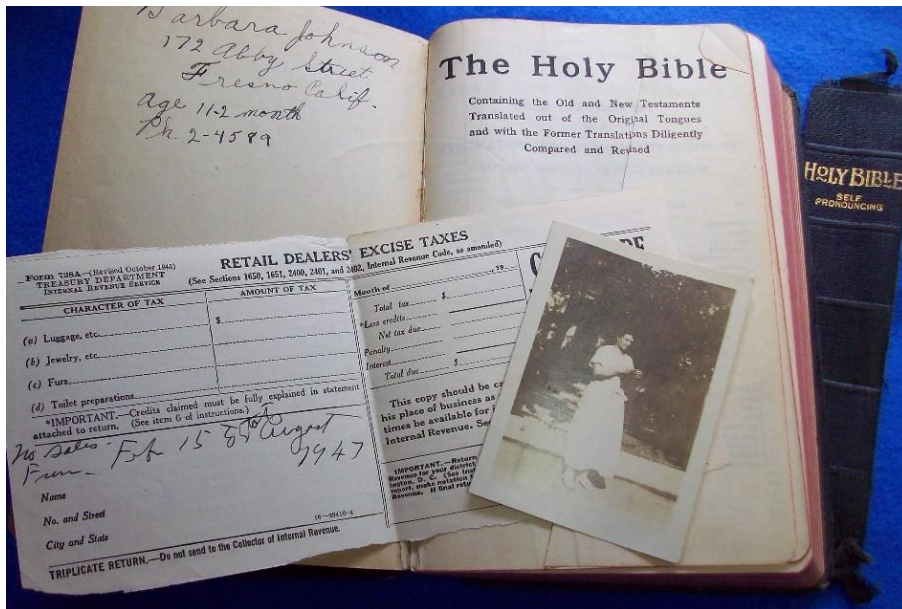 Barbara Johnson
172 Abby Street
Fresno Calif.
age 11-2 month
Ph. 2-4589
The Holy Bible
Containing the Old and New Testaments
Translated out of the Original Tongues
and with the Former Translations Diligently
Compared and Revised
HOLY BIBLE
SELF
PRONOUNCING
Form 728A—(Revised October 1945)
TREASURY DEPARTMENT
INTERNAL REVENUE SERVICE
RETAIL DEALERS' EXCISE TAXES
(See Sections 1650, 1651, 2400, 2401, and 2402, Internal Revenue Code, as amended)
CHARACTER OF TAX
AMOUNT OF TAX
(a) Luggage, etc.
$
(b) Jewelry, etc.
(c) Furs
(d) Toilet preparations
*IMPORTANT.—Credits claimed must be fully explained in statement
attached to return. (See item 6 of instructions.)
no sales
From Feb 15 August
1947
Name
No. and Street
City and State
16—23410-4
TRIPLICATE RETURN.—Do not send to the Collector of Internal Revenue.
Month of , 19
Total tax $
*Less credits
Net tax due
Penalty
Interest
Total due $
This copy should be
his place of business as
times be available for
Internal Revenue.
IMPORTANT.—Return
Revenue for your district
ington, D. C. (See
report, make notation
Revenue. If final